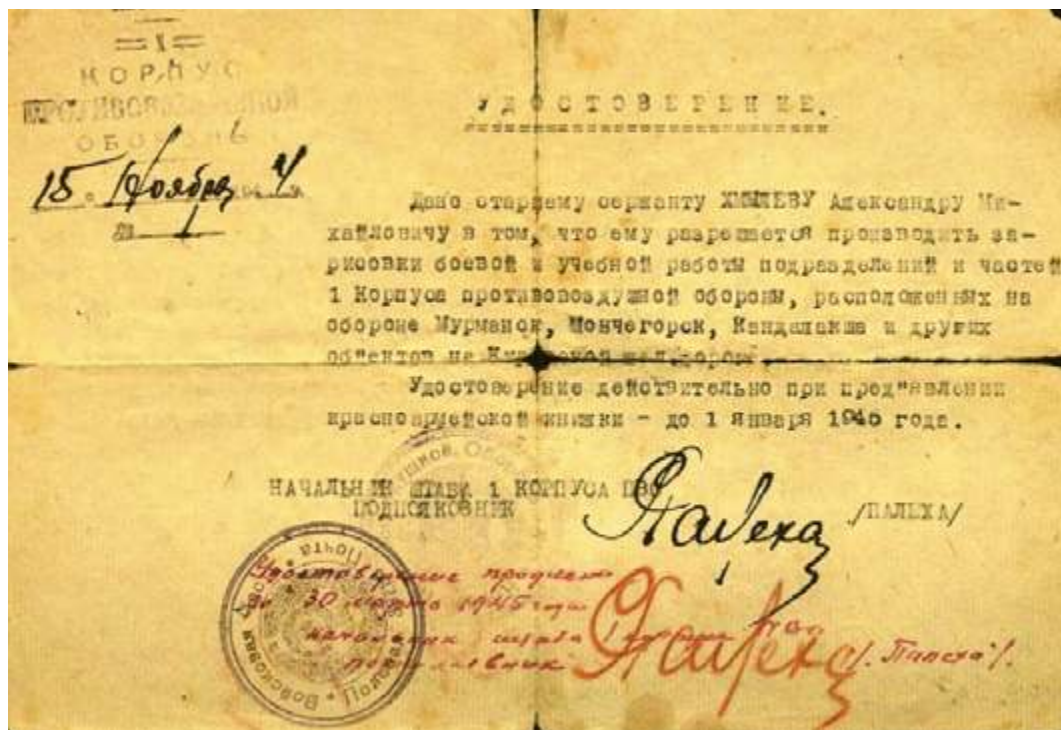 1
КОРПУС
ПРОТИВОВОЗДУШНОЙ
ОБОРОНЫ
15 Ноября 4
УДОСТОВЕРЕНИЕ.
Дано старшему сержанту ХМЫЛЕВУ Александру Ми-
хайловичу в том, что ему разрешается производить за-
рисовки боевой и учебной работы подразделений и частей
1 Корпуса противовоздушной обороны, расположенных на
обороне Мурманск, Мончегорск, Кандалакша и других
об'ектов на Кировской жел.дороге.
Удостоверение действительно при пред"явлении
красноармейской книжки - до 1 января 1945 года.
НАЧАЛЬНИК ШТАБА 1 КОРПУСА ПВО
ПОДПОЛКОВНИК
Палеха /ПАЛЕХА/
Удостоверение продлено
до 30 марта 1945 года
начальник штаба 1 корпуса пво
подполковник Палеха /. Палеха /.
Полевая Почта • Войсковая